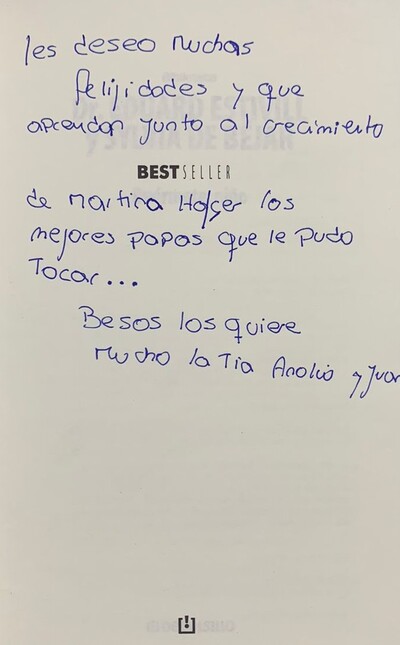 les deseo muchas
felijidades y que
aprendan junto al crecimiento
BESTSELLER
de Martina Hacer los
mejores papas que le pudo
Tocar...
Besos los quiere
Mucho la Tia Analia y Juan